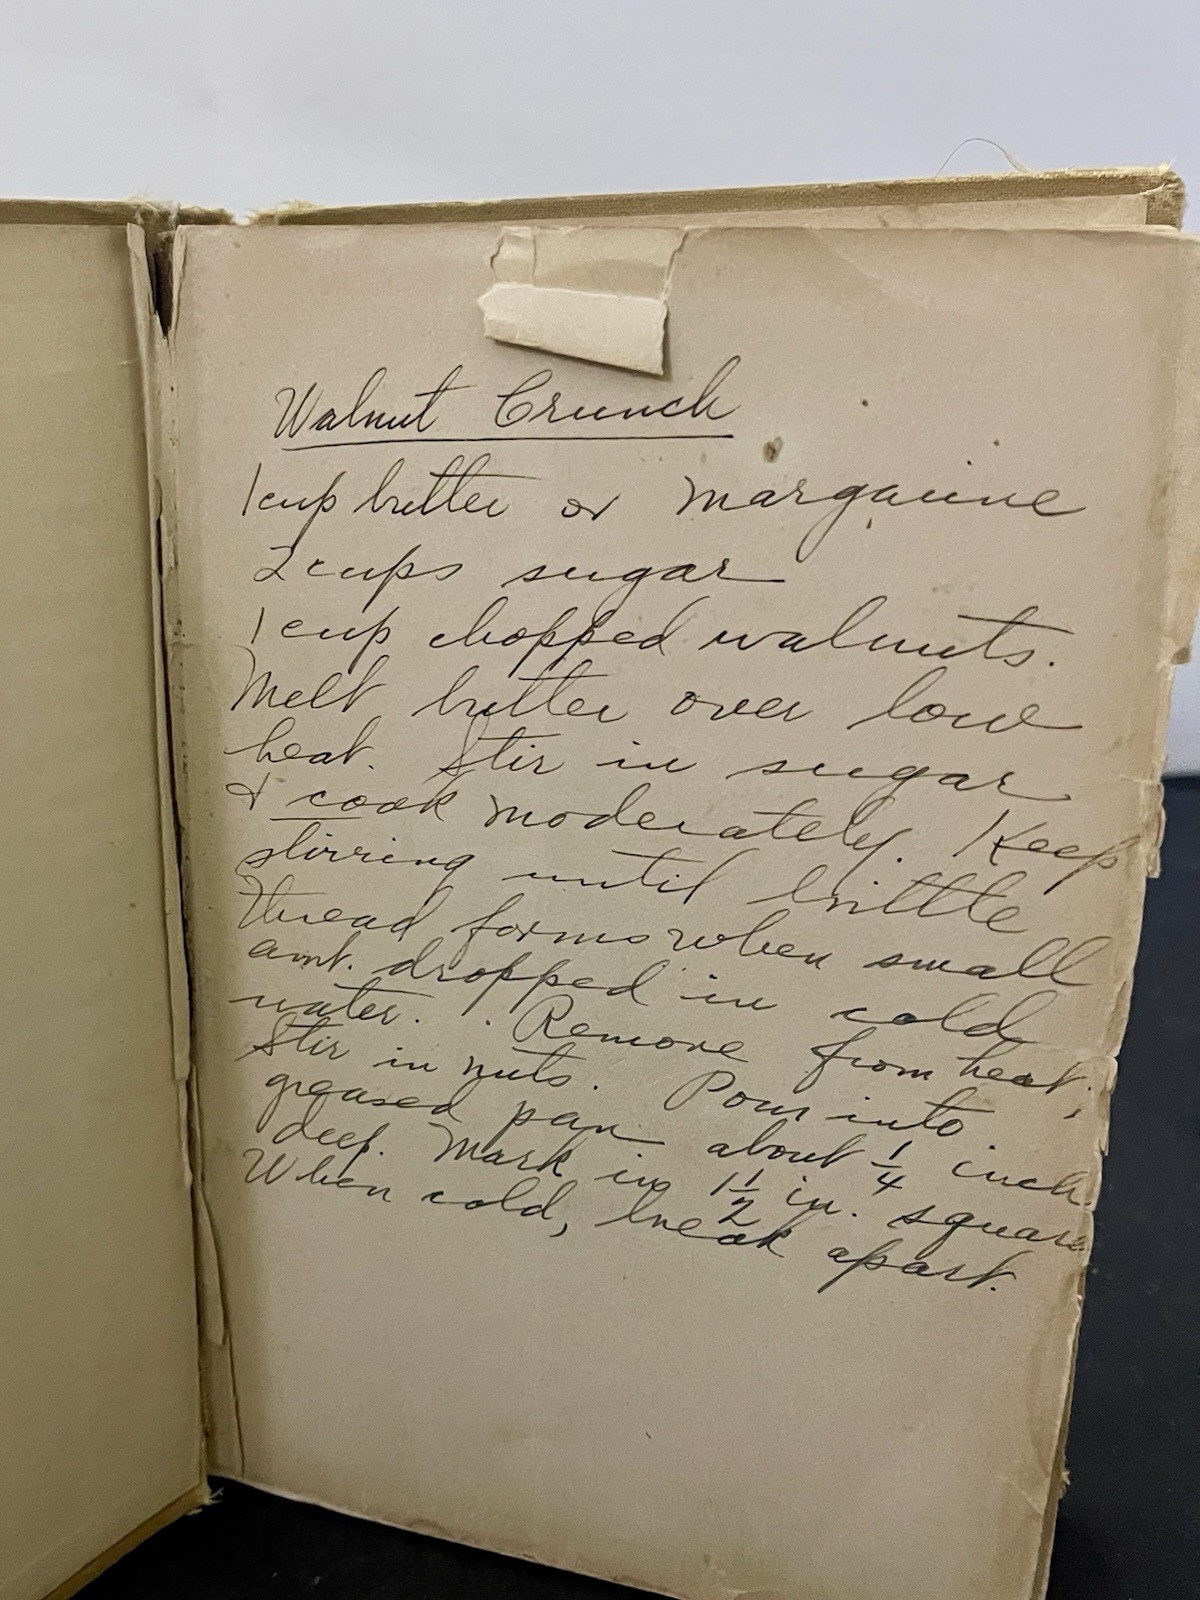 Walnut Crunch
1 cup butter or margarine
2 cups sugar
1 cup chopped walnuts.
Melt butter over low
heat. Stir in sugar
& cook moderately. Keep
stirring until brittle
thread forms when small
amt. dropped in cold
water. Remove from heat;
Stir in nuts. Pour into
greased pan about 1/4 inch
deep. Mark in 1 1/2 in. squares
When cold, break apart.